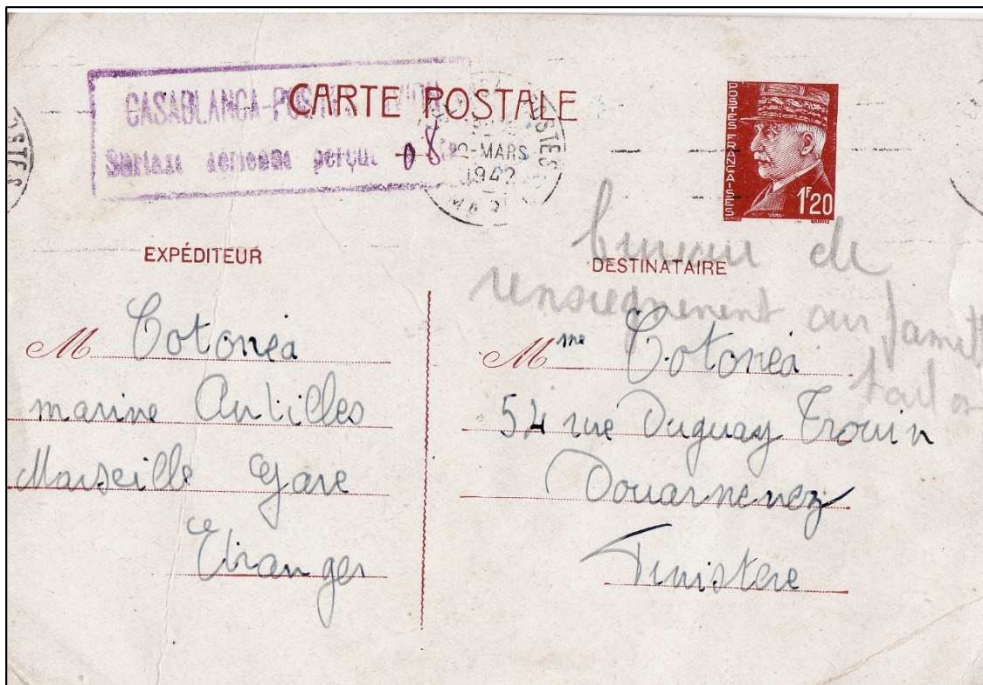 CASABLANCA-POSTE
Surtaxe aérienne perçue 08
CARTE POSTALE
POSTES
-MARS
1942
POSTES FRANÇAISES
1F20
STES
EXPÉDITEUR
M Cotonéa
marine Antilles
Marseille Gare
Etranger
bureau de
renseignement aux
DESTINATAIRE
Mme Cotonéa
54 rue Duguay Trouin
Douarnenez
Finistère